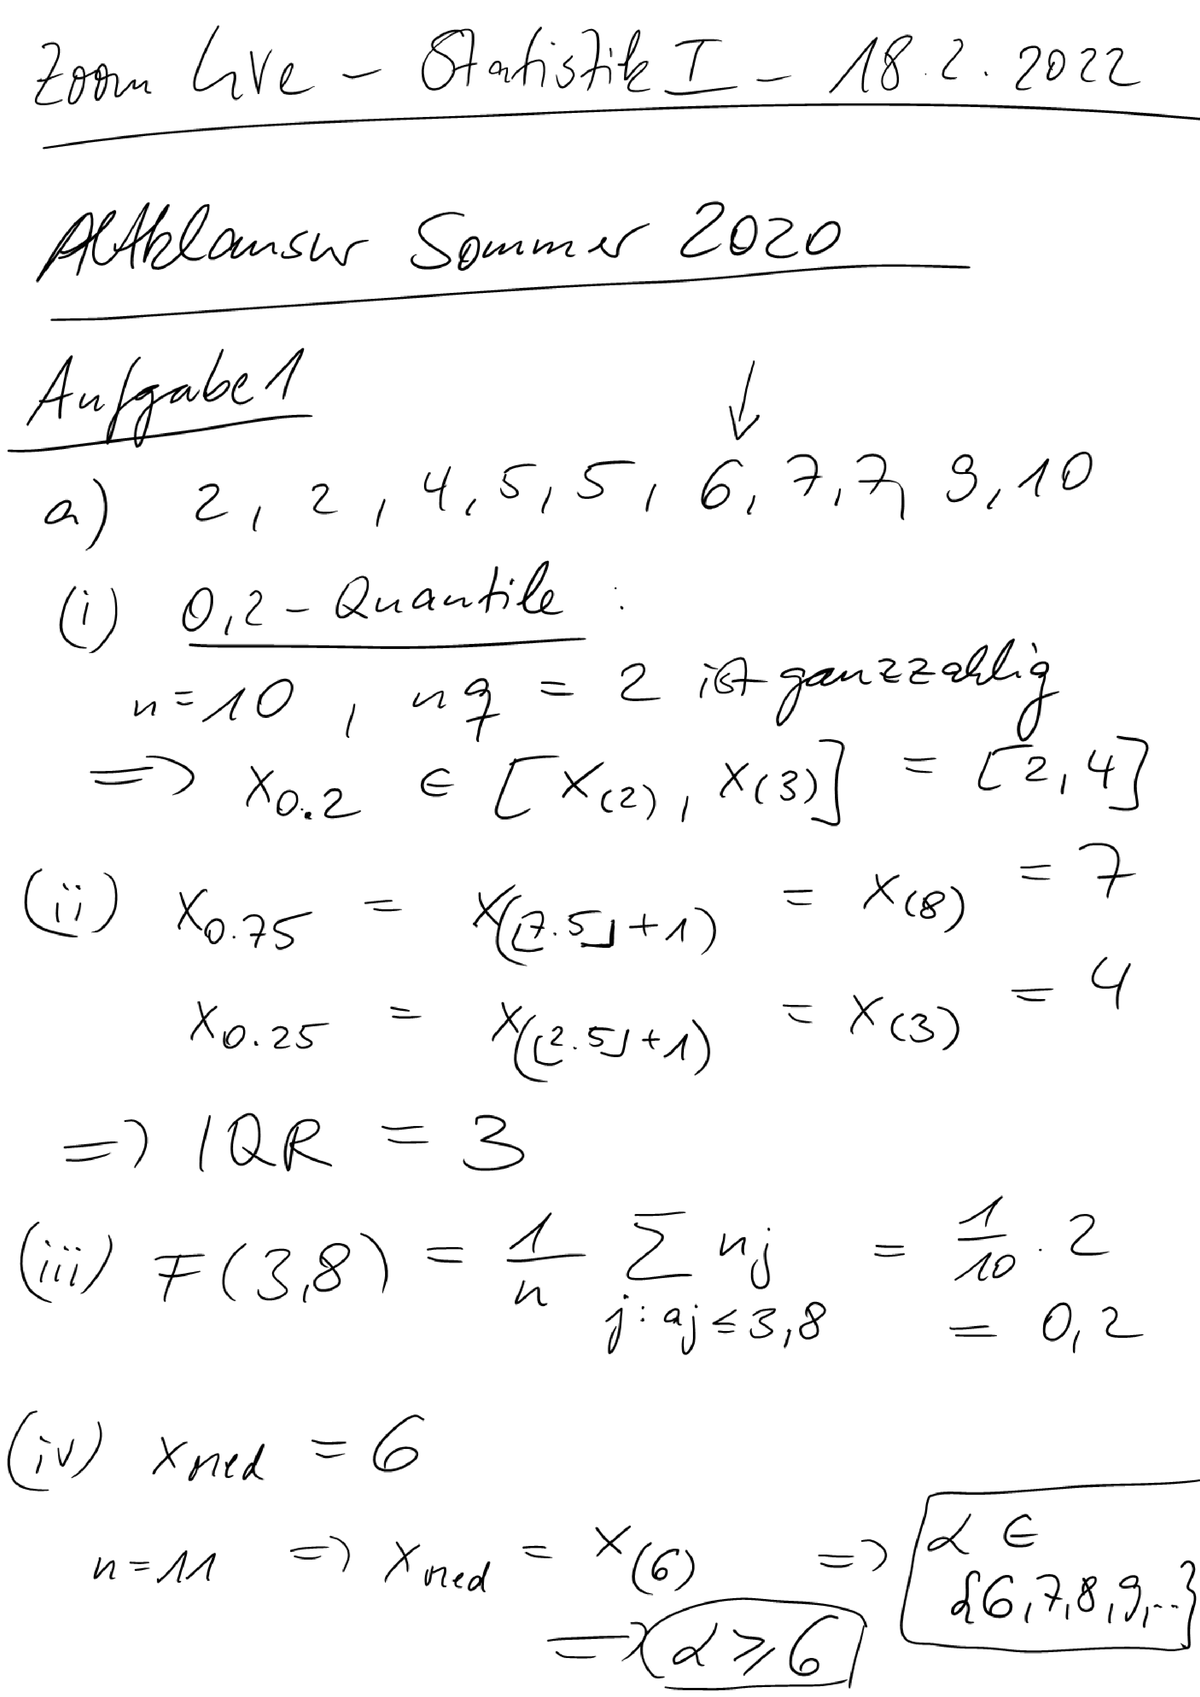 Zoom live – Statistik I – 18.2.2022
Altklausur Sommer 2020
Aufgabe 1
↓
a) 2, 2, 4, 5, 5, 6, 7, 7, 9, 10
(i) 0,2 – Quantile :
n = 10, nq = 2 ist ganzzahlig
=> x_{0.2} ∈ [x_{(2)}, x_{(3)}] = [2, 4]
(ii) x_{0.75} = x_{(⌊7.5⌋+1)} = x_{(8)} = 7
x_{0.25} = x_{(⌊2.5⌋+1)} = x_{(3)} = 4
=> IQR = 3
(iii) F(3,8) = \frac{1}{n} \sum_{j: a_j ≤ 3,8} n_j = \frac{1}{10} · 2
= 0,2
(iv) x_{med} = 6
n = 11 => x_{med} = x_{(6)} => α ∈
{6,7,8,9,..}
=> α ≥ 6